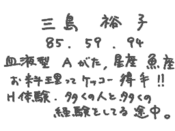 三島 裕子
85. 59. 94
血液型 Aがた, 星座 魚座
お料理ってケッコー得手!!
H体験. 多くの人と, 多くの
経験としてる途中。